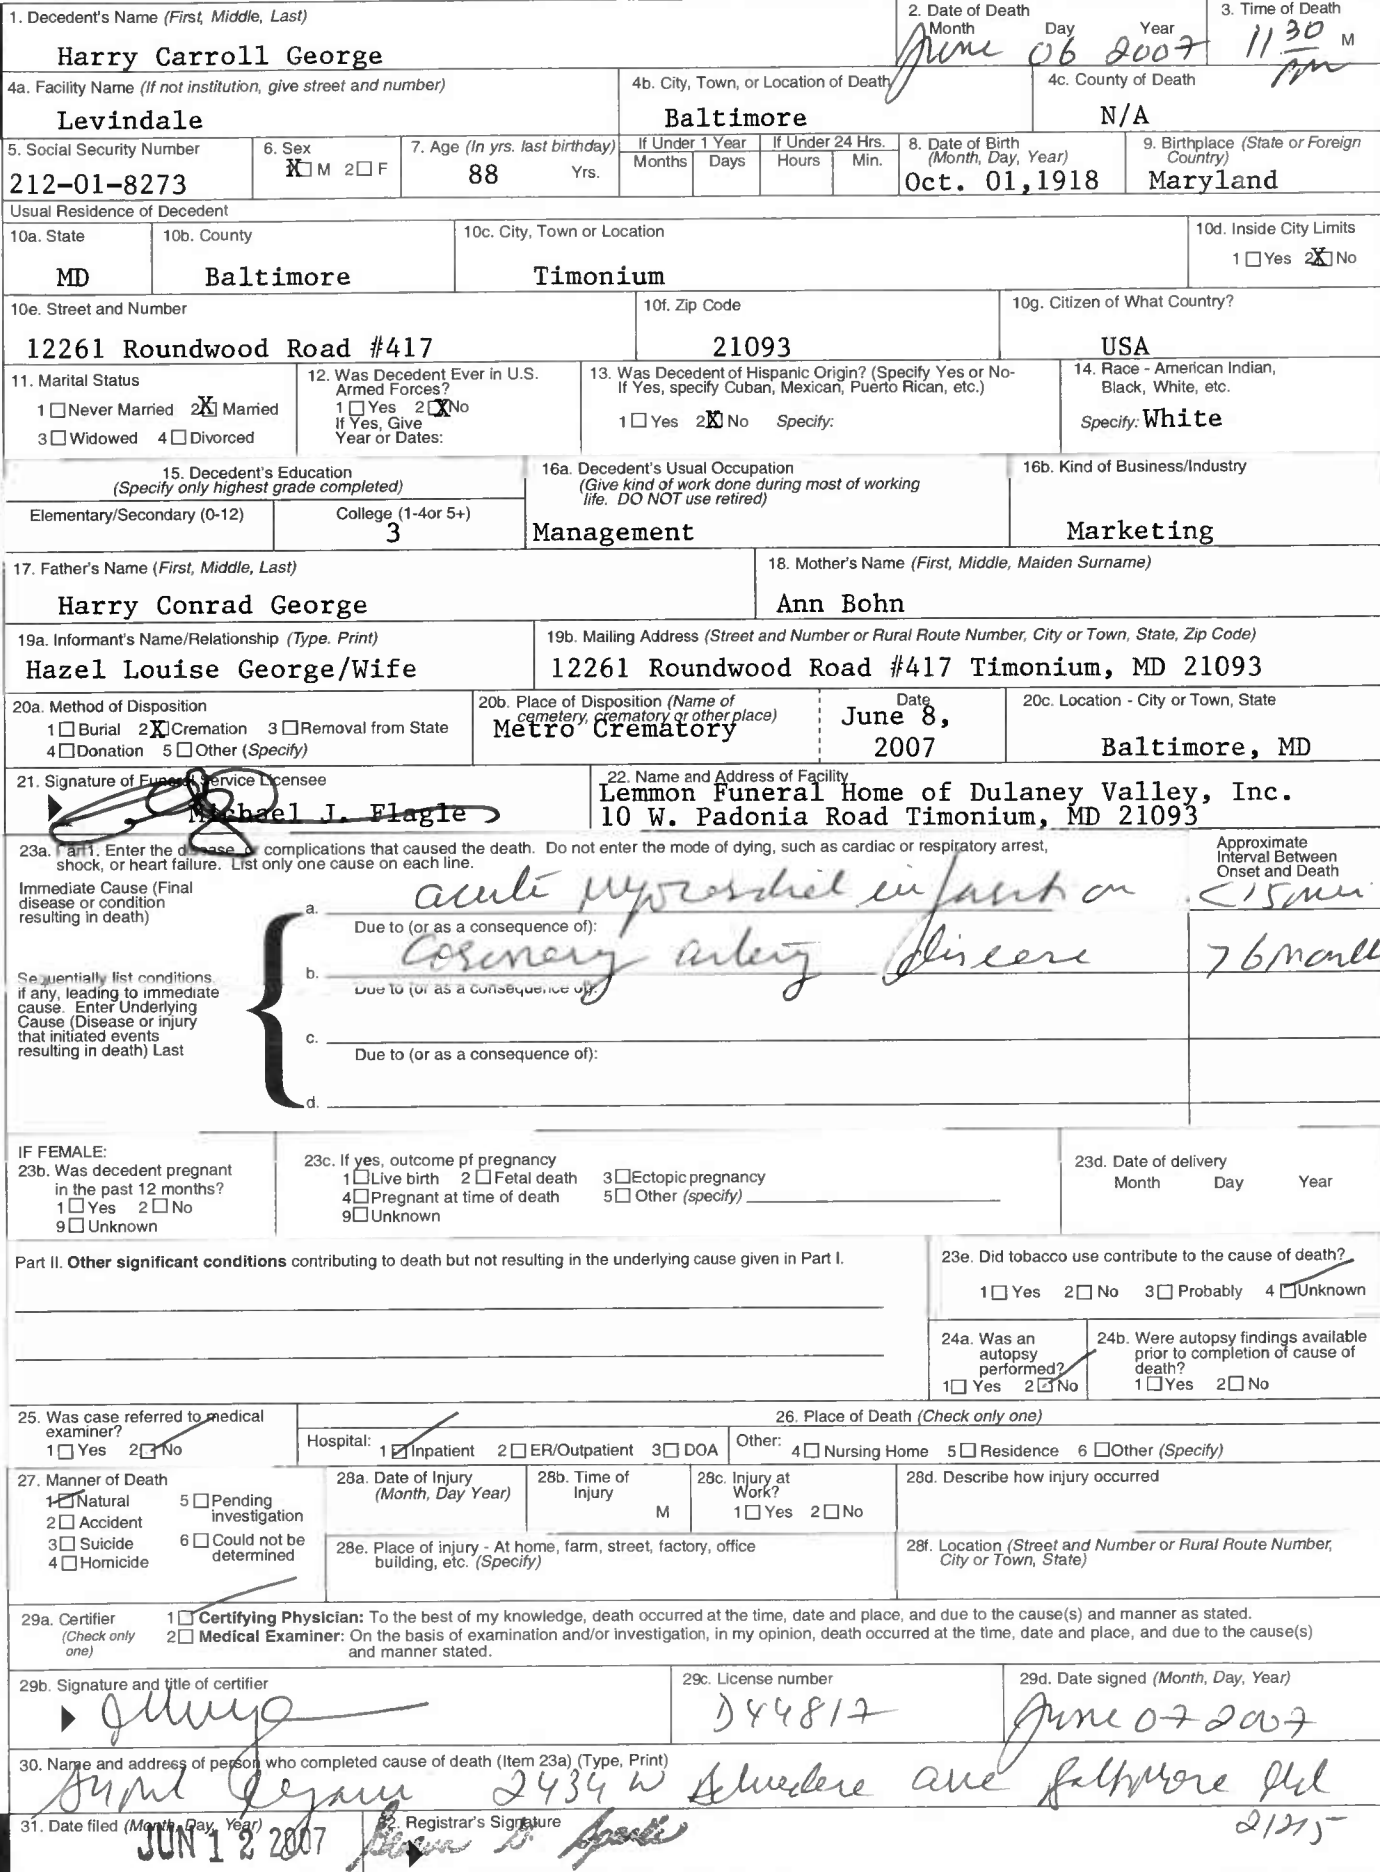 1. Decedent's Name (First, Middle, Last)
Harry Carroll George
2. Date of Death
Month Day Year
June 06 2007
3. Time of Death
11 30 M
pm
4a. Facility Name (If not institution, give street and number)
Levindale
4b. City, Town, or Location of Death
Baltimore
4c. County of Death
N/A
5. Social Security Number
212-01-8273
6. Sex
X M 2 F
7. Age (In yrs. last birthday)
88 Yrs.
If Under 1 Year
Months Days
If Under 24 Hrs.
Hours Min.
8. Date of Birth
(Month, Day, Year)
Oct. 01,1918
9. Birthplace (State or Foreign
Country)
Maryland
Usual Residence of Decedent
10a. State
MD
10b. County
Baltimore
10c. City, Town or Location
Timonium
10d. Inside City Limits
1 Yes 2 X No
10e. Street and Number
12261 Roundwood Road #417
10f. Zip Code
21093
10g. Citizen of What Country?
USA
11. Marital Status
1 Never Married 2 X Married
3 Widowed 4 Divorced
12. Was Decedent Ever in U.S.
Armed Forces?
1 Yes 2 X No
If Yes, Give
Year or Dates:
13. Was Decedent of Hispanic Origin? (Specify Yes or No-
If Yes, specify Cuban, Mexican, Puerto Rican, etc.)
1 Yes 2 X No Specify:
14. Race - American Indian,
Black, White, etc.
Specify: White
15. Decedent's Education
(Specify only highest grade completed)
Elementary/Secondary (0-12)
College (1-4or 5+)
3
16a. Decedent's Usual Occupation
(Give kind of work done during most of working
life. DO NOT use retired)
Management
16b. Kind of Business/Industry
Marketing
17. Father's Name (First, Middle, Last)
Harry Conrad George
18. Mother's Name (First, Middle, Maiden Surname)
Ann Bohn
19a. Informant's Name/Relationship (Type. Print)
Hazel Louise George/Wife
19b. Mailing Address (Street and Number or Rural Route Number, City or Town, State, Zip Code)
12261 Roundwood Road #417 Timonium, MD 21093
20a. Method of Disposition
1 Burial 2 X Cremation 3 Removal from State
4 Donation 5 Other (Specify)
20b. Place of Disposition (Name of
cemetery, crematory or other place)
Metro Crematory
Date
June 8,
2007
20c. Location - City or Town, State
Baltimore, MD
21. Signature of Funeral Service Licensee
Michael J. Flagle
22. Name and Address of Facility
Lemmon Funeral Home of Dulaney Valley, Inc.
10 W. Padonia Road Timonium, MD 21093
23a. Part1. Enter the disease, or complications that caused the death. Do not enter the mode of dying, such as cardiac or respiratory arrest,
shock, or heart failure. List only one cause on each line.
Approximate
Interval Between
Onset and Death
Immediate Cause (Final
disease or condition
resulting in death)
a. acute myocardial infarction <15 min
Due to (or as a consequence of):
Sequentially list conditions,
if any, leading to immediate
cause. Enter Underlying
Cause (Disease or injury
that initiated events
resulting in death) Last
b. Coronary artery disease >6 month
Due to (or as a consequence of):
c.
Due to (or as a consequence of):
d.
IF FEMALE:
23b. Was decedent pregnant
in the past 12 months?
1 Yes 2 No
9 Unknown
23c. If yes, outcome pf pregnancy
1 Live birth 2 Fetal death 3 Ectopic pregnancy
4 Pregnant at time of death 5 Other (specify)
9 Unknown
23d. Date of delivery
Month Day Year
Part II. Other significant conditions contributing to death but not resulting in the underlying cause given in Part I.
23e. Did tobacco use contribute to the cause of death?
1 Yes 2 No 3 Probably 4 Unknown
24a. Was an
autopsy
performed?
1 Yes 2 No
24b. Were autopsy findings available
prior to completion of cause of
death?
1 Yes 2 No
25. Was case referred to medical
examiner?
1 Yes 2 No
26. Place of Death (Check only one)
Hospital: 1 Inpatient 2 ER/Outpatient 3 DOA
Other: 4 Nursing Home 5 Residence 6 Other (Specify)
27. Manner of Death
1 Natural
2 Accident
3 Suicide
4 Homicide
5 Pending
investigation
6 Could not be
determined
28a. Date of Injury
(Month, Day Year)
28b. Time of
Injury
M
28c. Injury at
Work?
1 Yes 2 No
28d. Describe how injury occurred
28e. Place of injury - At home, farm, street, factory, office
building, etc. (Specify)
28f. Location (Street and Number or Rural Route Number,
City or Town, State)
29a. Certifier
(Check only
one)
1 Certifying Physician: To the best of my knowledge, death occurred at the time, date and place, and due to the cause(s) and manner as stated.
2 Medical Examiner: On the basis of examination and/or investigation, in my opinion, death occurred at the time, date and place, and due to the cause(s)
and manner stated.
29b. Signature and title of certifier
29c. License number
D44817
29d. Date signed (Month, Day, Year)
June 07 2007
30. Name and address of person who completed cause of death (Item 23a) (Type, Print)
2434 W Belvedere ave Baltimore Md
21215
31. Date filed (Month, Day, Year)
JUN 12 2007
32. Registrar's Signature